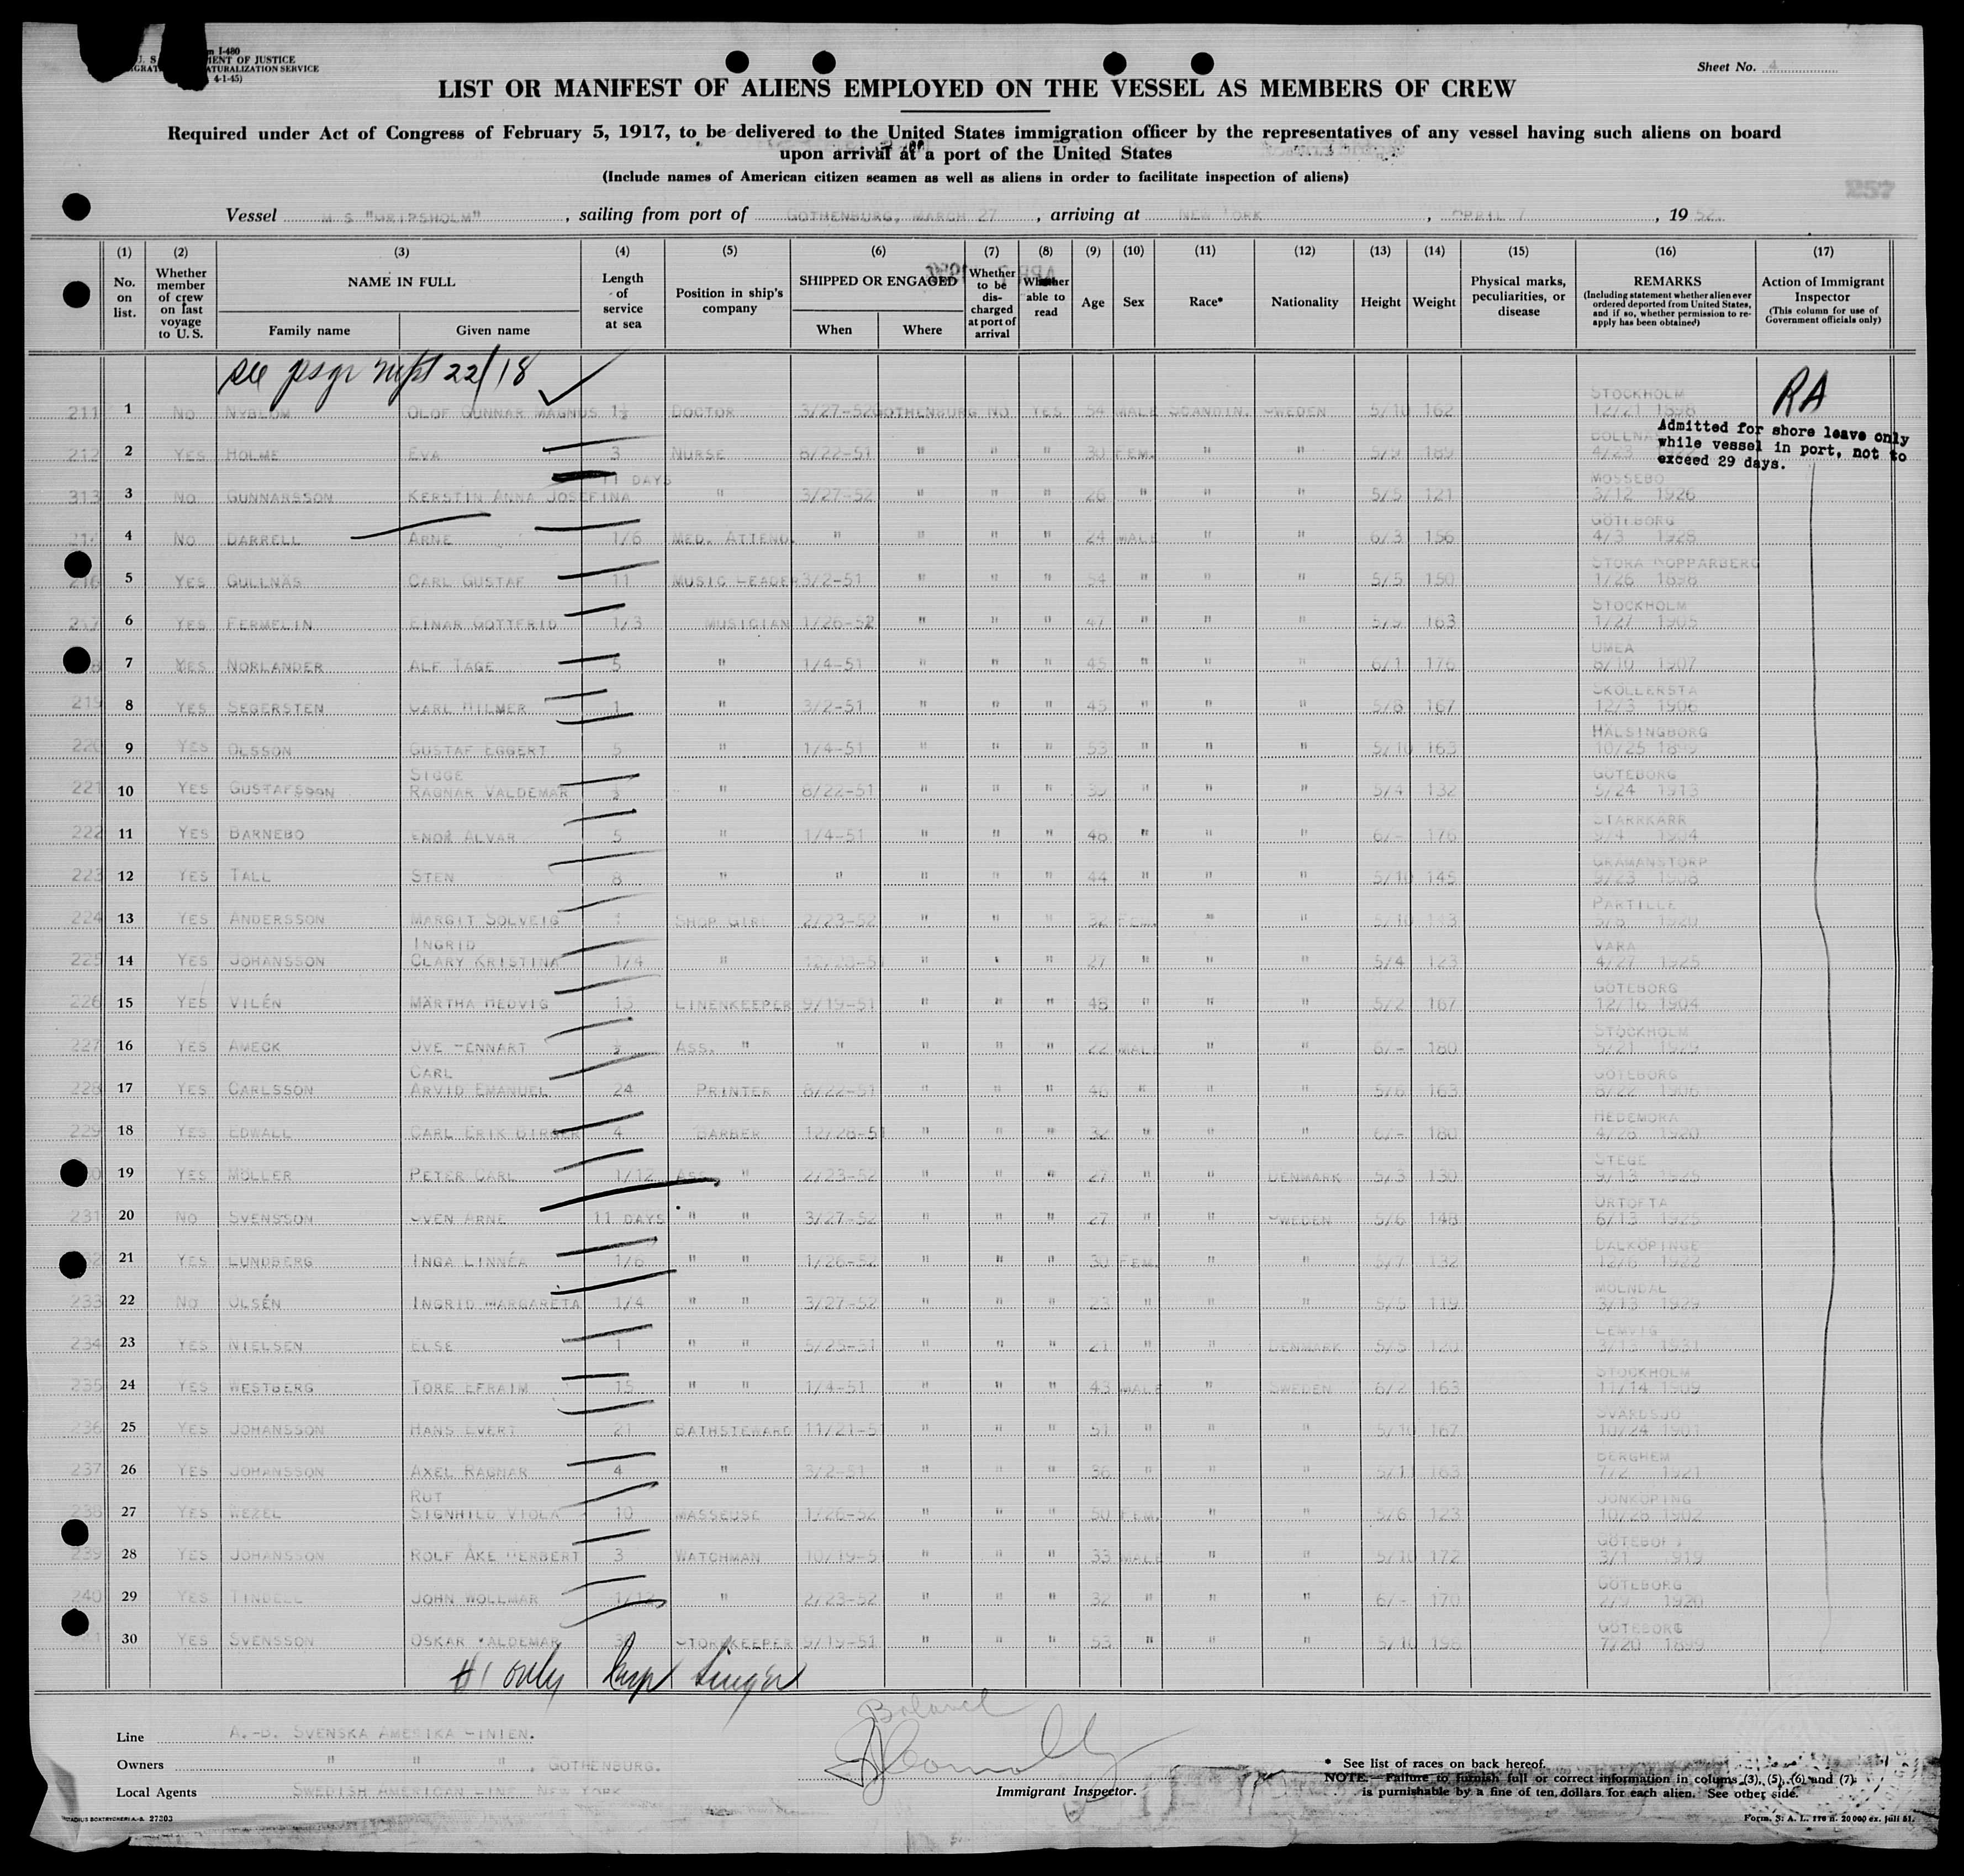 m I-480
U. S. MENT OF JUSTICE
IGRAT ATURALIZATION SERVICE
4-1-45)
Sheet No. 4
LIST OR MANIFEST OF ALIENS EMPLOYED ON THE VESSEL AS MEMBERS OF CREW
Required under Act of Congress of February 5, 1917, to be delivered to the United States immigration officer by the representatives of any vessel having such aliens on board
upon arrival at a port of the United States
(Include names of American citizen seamen as well as aliens in order to facilitate inspection of aliens)
257
Vessel M S "GRIPSHOLM", sailing from port of GOTHENBURG, MARCH 27, arriving at NEW YORK, APRIL 7, 1952.
(1) (2) (3) (4) (5) (6) (7) (8) (9) (10) (11) (12) (13) (14) (15) (16) (17)
No. on list. Whether member of crew on last voyage to U. S. NAME IN FULL Family name Given name Length of service at sea Position in ship's company SHIPPED OR ENGAGED When Where Whether to be discharged at port of arrival Whether able to read Age Sex Race* Nationality Height Weight Physical marks, peculiarities, or disease REMARKS (Including statement whether alien ever ordered deported from United States, and if so, whether permission to re-apply has been obtained) Action of Immigrant Inspector (This column for use of Government officials only)
see psgr 22/18
STOCKHOLM RA
211 1 NO NYBLOM OLOF GUNNAR MAGNUS 1½ DOCTOR 3/27-52 GOTHENBURG NO YES 54 MALE SCANDIN. SWEDEN 5/10 162 12/21 1898
Admitted for shore leave only
while vessel in port, not to
exceed 29 days.
212 2 YES HOLME EVA 3 NURSE 8/22-51 " " " 30 FEM. " " 5/9 189 4/23
11 DAYS MOSSEBO
313 3 NO GUNNARSSON KERSTIN ANNA JOSEFINA " 3/27-52 " " " 26 " " " 5/5 121 3/12 1926
GÖTEBORG
4 NO DARRELL ARNE 1/6 MED. ATTEND. " " " " 24 MALE " " 6/3 156 4/3 1928
STORA KOPPARBERG
216 5 YES GULLNÄS CARL GUSTAF 11 MUSIC LEADER 3/2-51 " " " 54 " " " 5/5 150 1/26 1898
STOCKHOLM
217 6 YES FERMELIN EINAR GOTTFRID 1/3 MUSICIAN 1/26-52 " " " 47 " " " 5/9 163 1/27 1905
UMEA
7 YES NORLANDER ALF TAGE 5 " 1/4-51 " " " 45 " " " 6/1 176 6/10 1907
SKÖLLERSTA
219 8 YES SEGERSTEN CARL HILMER 1 " 3/2-51 " " " 45 " " " 5/8 167 12/3 1906
HÄLSINGBORG
220 9 YES OLSSON GUSTAF EGGERT 5 " 1/4-51 " " " 53 " " " 5/10 163 10/25 1899
SIGGE GÖTEBORG
221 10 YES GUSTAFSSON RAGNAR VALDEMAR " 8/22-51 " " " 39 " " " 5/4 132 5/24 1913
STARRKÄRR
222 11 YES BARNEBO ENOK ALVAR 5 " 1/4-51 " " " 48 " " " 6/- 176 9/4 1904
GRÄMANSTORP
223 12 YES TALL STEN 8 " " " " " 44 " " " 5/10 145 9/23 1908
PARTILLE
224 13 YES ANDERSSON MARGIT SOLVEIG SHOP GIRL 2/23-52 " " " 32 FEM. " " 5/10 143 5/8 1920
INGRID VARA
225 14 YES JOHANSSON CLARY KRISTINA 1/4 " " " " 27 " " " 5/4 123 4/27 1925
GÖTEBORG
226 15 YES VILÉN MÄRTHA HEDVIG 13 LINENKEEPER 9/19-51 " " " 48 " " " 5/2 167 12/16 1904
STOCKHOLM
227 16 YES AMECK OVE LENNART ½ ASS. " " " " " 22 MALE " " 6/- 180 5/21 1929
CARL GÖTEBORG
228 17 YES CARLSSON ARVID EMANUEL 24 PRINTER 8/22-51 " " " 46 " " " 5/6 163 8/22 1906
HEDEMORA
229 18 YES EDWALL CARL ERIK BIRGER 4 BARBER 12/28-51 " " " 32 " " " 6/- 180 4/28 1920
STEGE
19 YES MÖLLER PETER CARL 1/12 ASS. " 2/23-52 " " " 27 " " DENMARK 5/3 130 9/13 1925
ÖRTOFTA
231 20 NO SVENSSON SVEN ARNE 11 DAYS " " 3/27-52 " " " 27 " " SWEDEN 5/6 148 6/13 1925
DALKÖPINGE
21 YES LUNDBERG INGA LINNÉA 1/6 " " 1/26-52 " " " 30 FEM. " " 5/7 132 12/6 1922
MÖLNDAL
233 22 NO OLSÉN INGRID MARGARETA 1/4 " " 3/27-52 " " " 23 " " " 5/5 119 3/13 1929
LEMVIG
234 23 YES NIELSEN ELSE 1 " " 5/25-51 " " " 21 " " DENMARK 5/5 120 3/13 1931
STOCKHOLM
235 24 YES WESTBERG TORE EFRAIM 15 " " 1/4-51 " " " 43 MALE " SWEDEN 6/2 163 11/14 1909
SVÄRDSJÖ
236 25 YES JOHANSSON HANS EVERT 21 BATHSTEWARD 11/21-5 " " " 51 " " " 5/10 167 10/24 1901
BERGHEM
237 26 YES JOHANSSON AXEL RAGNAR 4 " 3/2-51 " " " 36 " " " 5/11 163 7/2 1921
RUT JÖNKÖPING
238 27 YES WEZEL SIGNHILD VIOLA 10 MASSEUSE 1/26-52 " " " 50 FEM. " " 5/6 123 10/28 1902
GÖTEBORG
239 28 YES JOHANSSON ROLF ÅKE HERBERT 3 WATCHMAN 10/19-5 " " " 33 MALE " " 5/10 172 3/1 1919
GÖTEBORG
240 29 YES TINDELL JOHN WOLLMAR 1/12 " 2/23-52 " " " 32 " " " 6/- 170 2/9 1920
GÖTEBORG
30 YES SVENSSON OSKAR VALDEMAR STOREKEEPER 9/19-51 " " " 53 " " " 5/10 198 7/20 1899
#1 only Insp Singer
Boland
Line A.-B. SVENSKA AMERIKA LINIEN.
Owners " " ", GOTHENBURG.
Local Agents SWEDISH AMERICAN LINE, NEW YORK
Immigrant Inspector.
* See list of races on back hereof.
NOTE.—Failure to furnish full or correct information in colums (3), (5), (6) and (7)
is punishable by a fine of ten dollars for each alien. See other side.
BOKTRYCKERI A.-B. 27303
Form. S. A. L. 170 n. 20 000 ex. juli 51.